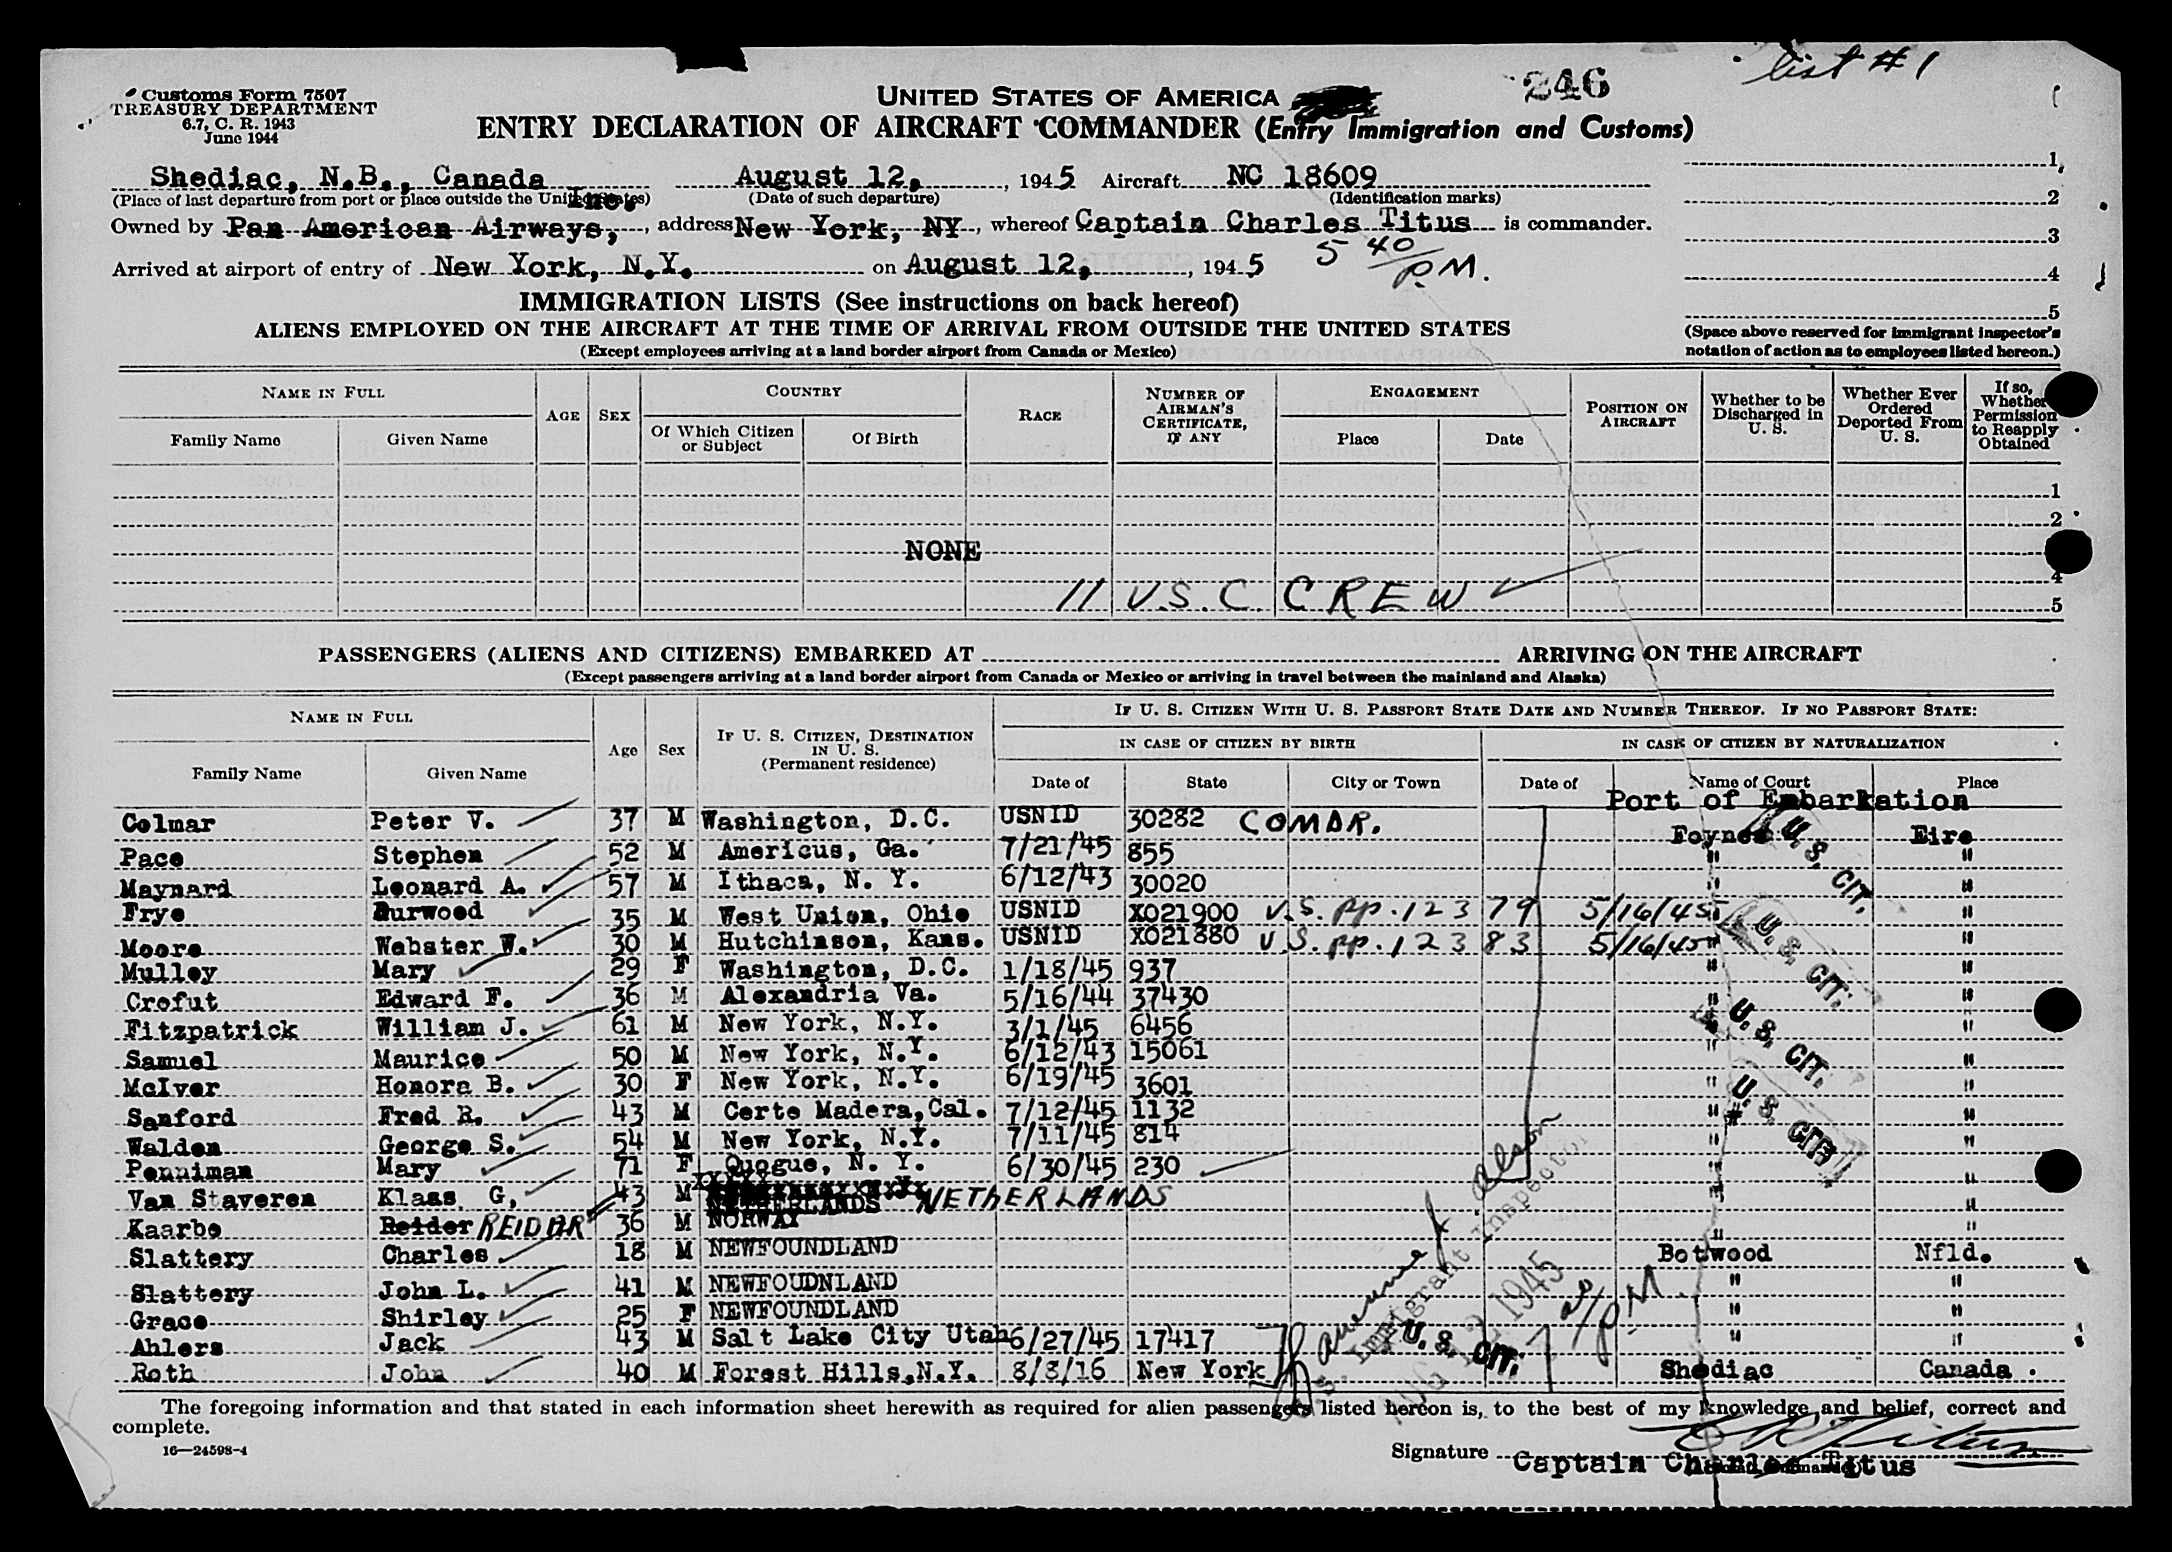 list #1
Customs Form 7507
TREASURY DEPARTMENT
6.7, C. R. 1943
June 1944
UNITED STATES OF AMERICA
246
ENTRY DECLARATION OF AIRCRAFT COMMANDER (Entry Immigration and Customs)
Shediac, N.B., Canada August 12, , 1945 Aircraft NC 18609
(Place of last departure from port or place outside the United States) (Date of such departure) (Identification marks)
Owned by Pan American Airways, Inc. , address New York, NY , whereof Captain Charles Titus is commander.
Arrived at airport of entry of New York, N.Y. on August 12, , 1945 5 40/P.M.
1
2
3
4
5
(Space above reserved for immigrant inspector's notation of action as to employees listed hereon.)
IMMIGRATION LISTS (See instructions on back hereof)
ALIENS EMPLOYED ON THE AIRCRAFT AT THE TIME OF ARRIVAL FROM OUTSIDE THE UNITED STATES
(Except employees arriving at a land border airport from Canada or Mexico)
NAME IN FULL AGE SEX COUNTRY RACE NUMBER OF AIRMAN'S CERTIFICATE, IF ANY ENGAGEMENT POSITION ON AIRCRAFT Whether to be Discharged in U. S. Whether Ever Ordered Deported From U. S. If so, Whether Permission to Reapply Obtained
Family Name Given Name Of Which Citizen or Subject Of Birth Place Date
1
2
NONE
4
11 U.S.C. CREW 5
PASSENGERS (ALIENS AND CITIZENS) EMBARKED AT ARRIVING ON THE AIRCRAFT
(Except passengers arriving at a land border airport from Canada or Mexico or arriving in travel between the mainland and Alaska)
NAME IN FULL Age Sex IF U. S. CITIZEN, DESTINATION IN U. S. (Permanent residence) IF U. S. CITIZEN WITH U. S. PASSPORT STATE DATE AND NUMBER THEREOF. IF NO PASSPORT STATE:
IN CASE OF CITIZEN BY BIRTH IN CASE OF CITIZEN BY NATURALIZATION
Family Name Given Name Date of State City or Town Date of Name of Court Place
Port of Embarkation
Colmar Peter V. 37 M Washington, D.C. USNID 30282 COMDR. Foynes Eire
Pace Stephen 52 M Americus, Ga. 7/21/45 855 " "
Maynard Leonard A. 57 M Ithaca, N. Y. 6/12/43 30020 " "
Frye Burwood 35 M West Union, Ohio USNID X021900 U.S. pp. 12379 5/16/45 " "
Moore Webster W. 30 M Hutchinson, Kans. USNID X021880 U.S. pp. 12383 5/16/45 " "
Mulley Mary 29 F Washington, D.C. 1/18/45 937 " "
Crofut Edward F. 36 M Alexandria Va. 5/16/44 37430 " "
Fitzpatrick William J. 61 M New York, N.Y. 3/1/45 6456 " "
Samuel Maurice 50 M New York, N.Y. 6/12/43 15061 " "
McIver Honora B. 30 F New York, N.Y. 6/19/45 3601 " "
Sanford Fred R. 43 M Corte Madera, Cal. 7/12/45 1132 " "
Walden George S. 54 M New York, N.Y. 7/11/45 814 " "
Penniman Mary 71 F Quogue, N. Y. 6/30/45 230 " "
Van Staveren Klaas G, 43 M NETHERLANDS NETHERLANDS " "
Kaarbo Reider REIDAR 36 M NORWAY " "
Slattery Charles 18 M NEWFOUNDLAND Botwood Nfld.
Slattery John L. 41 M NEWFOUDNLAND " "
Grace Shirley 25 F NEWFOUNDLAND " "
Ahlers Jack 43 M Salt Lake City Utah 6/27/45 17417 " "
Roth John 40 M Forest Hills, N.Y. 8/8/16 New York Shediac Canada.
U. S. CIT.
U. S. CIT.
U. S. CIT.
U. S. CIT.
U. S. CIT.
U. S. Immigrant Inspector
AUG 12 1945
The foregoing information and that stated in each information sheet herewith as required for alien passengers listed hereon is, to the best of my knowledge and belief, correct and
complete.
16—24598-4
Signature
Captain Charles Titus